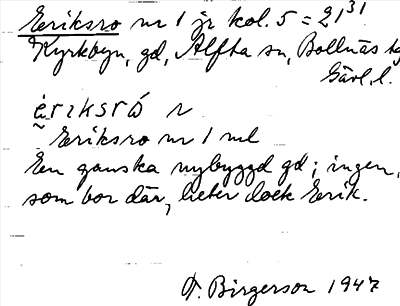 Eriksro nr 1 jr kol. 5 = 21³¹
Kyrkbyn, gd, Alfta sn, Bollnäs tg
Gävl. l.
èriksró n
Eriksro nr 1 ml
En ganska nybyggd gd; ingen,
som bor där, heter dock Erik.
F. Birgerson 1947